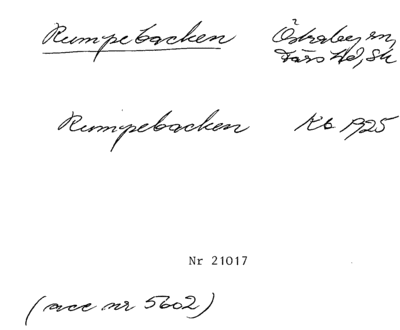 Rumpebacken Östraby sn,
Färs hd, Sk
Rumpebacken Kb 1925
Nr 21017
(acc nr 5602)